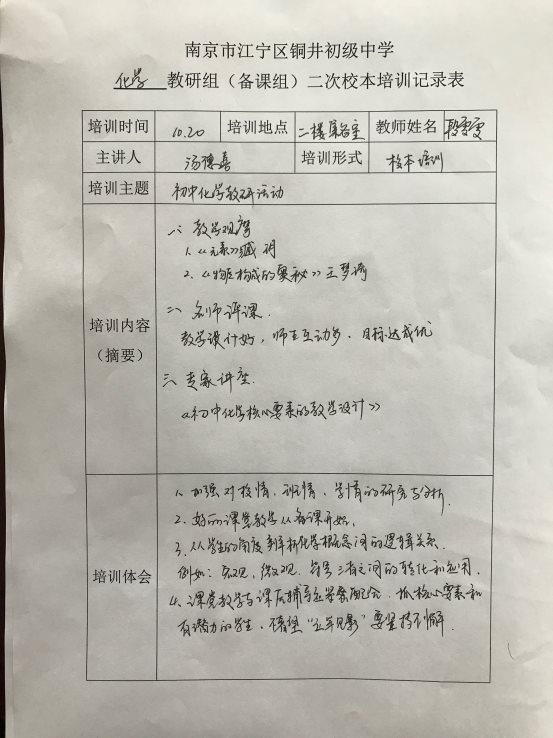 南京市江宁区铜井初级中学
化学 教研组（备课组）二次校本培训记录表
培训时间 10.20 培训地点 二楼 教师姓名
主讲人 培训形式 校本培训
培训主题 初中化学教研活动
培训内容（摘要）
一、教学观摩
1、《元素》 明
2、《物质构成的奥秘》王梦
二、名师评课
教学设计好，师生互动多、目标达成优
三、专家讲座
《初中化学核心要素的教学设计》
培训体会
1、加强对校情、班情、学情的研究与分析
2、好的课堂教学从备课开始
3、从学生的角度辨析化学概念间的逻辑关系
例如：宏观、微观、符号三者之间的转化和应用
4、课堂教学与课后辅导应紧密配合 抓核心要素和
有潜力的学生，不指望“立竿见影”要坚持不懈